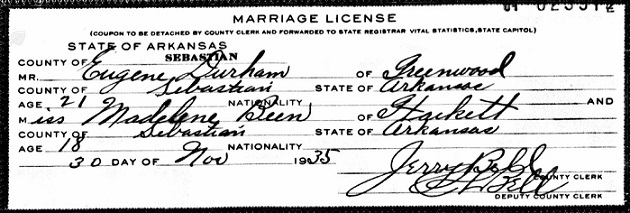 MARRIAGE LICENSE
(COUPON TO BE DETACHED BY COUNTY CLERK AND FORWARDED TO STATE REGISTRAR VITAL STATISTICS, STATE CAPITOL)
STATE OF ARKANSAS
COUNTY OF SEBASTIAN
MR. Eugene Durham OF Greenwood
COUNTY OF Sebastian STATE OF Arkansas
AGE 21 NATIONALITY AND
Miss Madelene Been OF Hackett
COUNTY OF Sebastian STATE OF Arkansas
AGE 18 NATIONALITY
30 DAY OF Nov 1935
Jerry Bell COUNTY CLERK
Bell
DEPUTY COUNTY CLERK